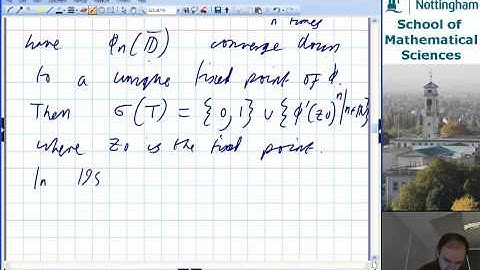 n times
have ϕn(𝔻̄) converge down
to a unique fixed point of ϕ.
Then σ(T) = {0,1} ∪ {ϕ'(z₀)ⁿ | n∈ℕ}
where z₀ is the fixed point.
In 195
Nottingham
School of
Mathematical
Sciences